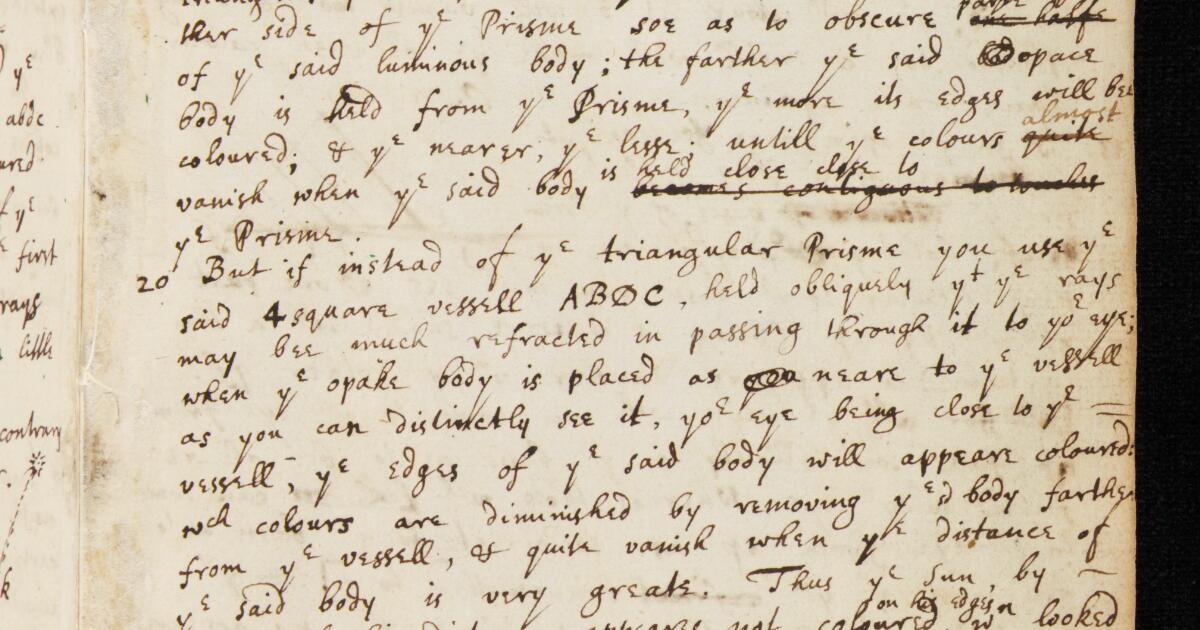 yᵉ
abdc
ured
f yᵉ
first
rays
little
contrary
ther side of yᵉ Prisme soe as to obscure parte one halfe
of yᵉ said luminous body; the farther yᵉ said opace
body is held from yᵉ Prisme, yᵉ more its edges will bee
coloured; & yᵉ nearer, yᵉ lesse; untill yᵉ colours almost quite
vanish when yᵉ said body is held close close to becomes contiguous to touches
yᵉ Prisme.
20 But if instead of yᵉ triangular Prisme you use yᵉ
said 4 square vessell ABDC, held obliquely yᵗ yᵉ rays
may bee much refracted in passing through it to yoᵉ eye;
when yᵉ opake body is placed as neare to yᵉ vessell
as you can distinctly see it, yoᵉ eye being close to yᵉ =
vessell, yᵉ edges of yᵉ said body will appeare coloured:
wch colours are diminished by removing yᵉ sd body farther
from yᵉ vessell, & quite vanish when yᵉ distance of
yᵉ said body is very greate. Thus yᵉ Sun, by
on his edges
appeares not coloured, looked